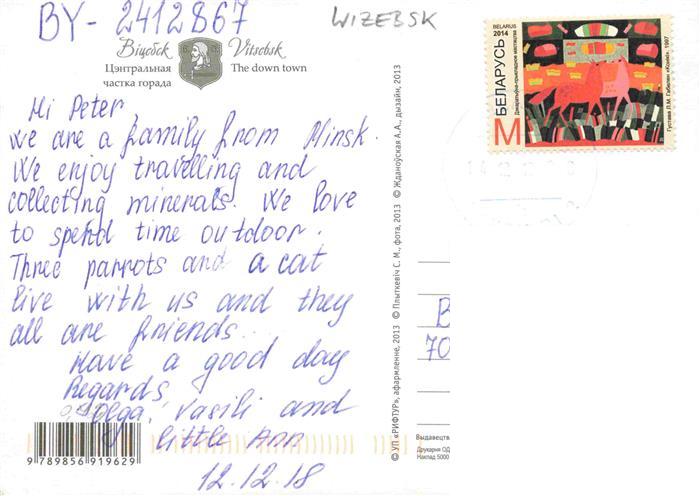 BY- 2412867
WIZEBSK
Віцебск Vitsebsk
Цэнтральная частка горада The down town
Hi Peter,
we are a family from Minsk.
We enjoy travelling and
collecting minerals. We love
to spend time outdoor.
Three parrots and a cat
live with us and they
all are friends...
Have a good day
Regards
Olga, Vasili and
little Ann
12.12.18
9 789856 919629
© УП «РИФТУР», афармленне, 2013 © Плыткевіч С. М., фота, 2013 © Ждановская А.А., дызайн, 2013
BELARUS
2014
БЕЛАРУСЬ
M
Дэкаратыўна-прыкладное мастацтва
Густава Л.М. Габелен «Коней». 1997
B
70
Выдавецтва
Друкарня ОД
Наклад 5000